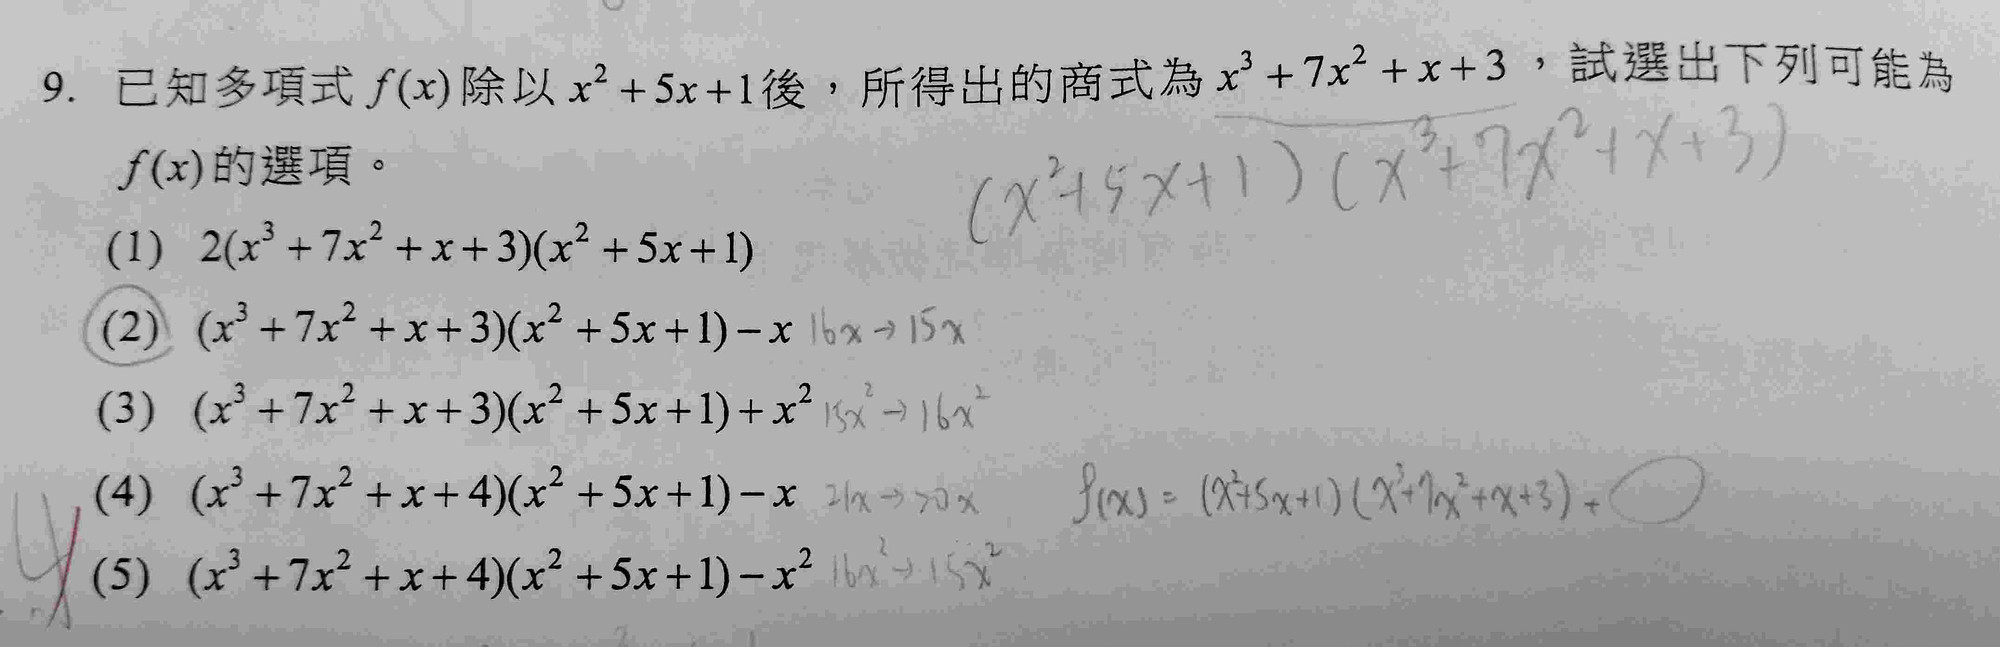 9. 已知多項式 f(x) 除以 x² + 5x + 1 後，所得出的商式為 x³ + 7x² + x + 3，試選出下列可能為
f(x) 的選項。
(x²+5x+1)(x³+7x²+x+3)
(1) 2(x³ + 7x² + x + 3)(x² + 5x + 1)
(2) (x³ + 7x² + x + 3)(x² + 5x + 1) − x 16x → 15x
(3) (x³ + 7x² + x + 3)(x² + 5x + 1) + x² 15x² → 16x²
(4) (x³ + 7x² + x + 4)(x² + 5x + 1) − x 21x → 20x
f(x) = (x²+5x+1)(x³+7x²+x+3) +
(5) (x³ + 7x² + x + 4)(x² + 5x + 1) − x² 16x² → 15x²